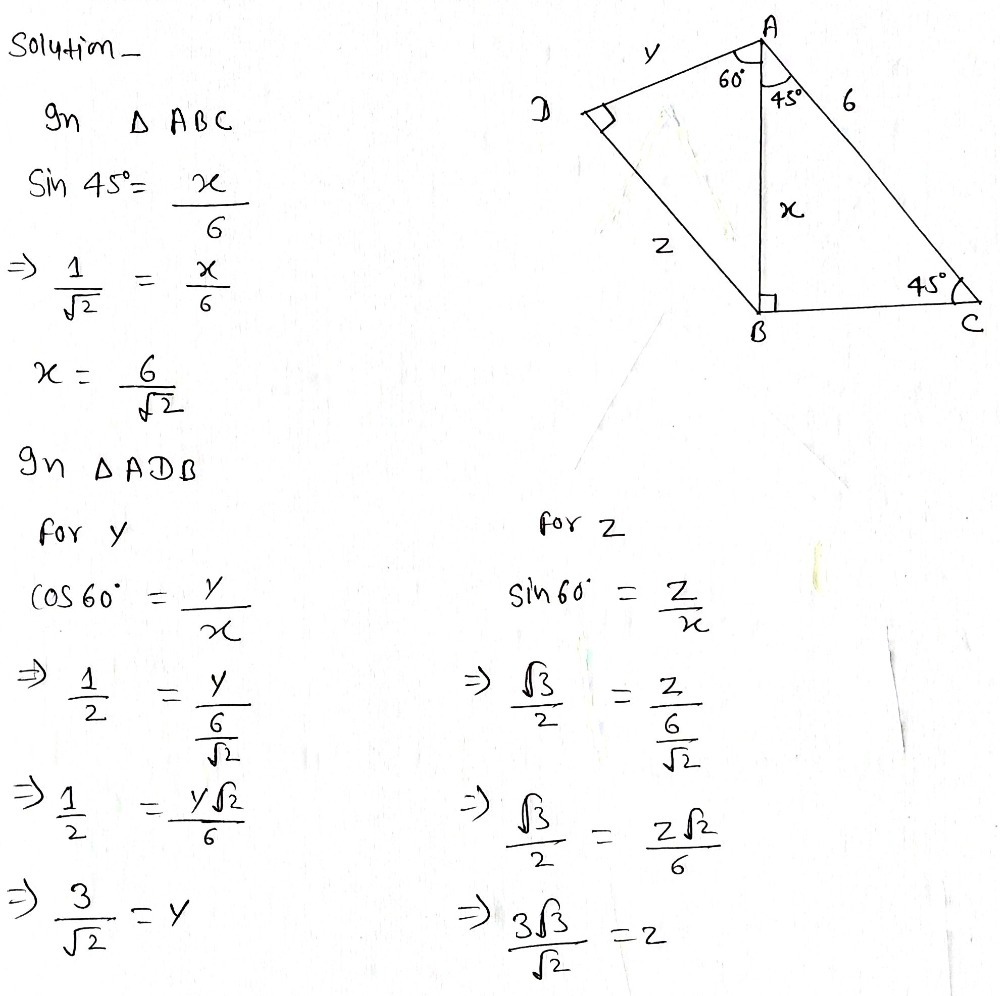 Solution -
In Δ ABC
Sin 45° = x/6
⇒ 1/√2 = x/6
x = 6/√2
In Δ ADB
for y
cos 60° = y/x
⇒ 1/2 = y/(6/√2)
⇒ 1/2 = y√2/6
⇒ 3/√2 = y
for z
sin 60° = z/x
⇒ √3/2 = z/(6/√2)
⇒ √3/2 = z√2/6
⇒ 3√3/√2 = z
A
y
60°
45°
6
D
x
z
45°
B
C